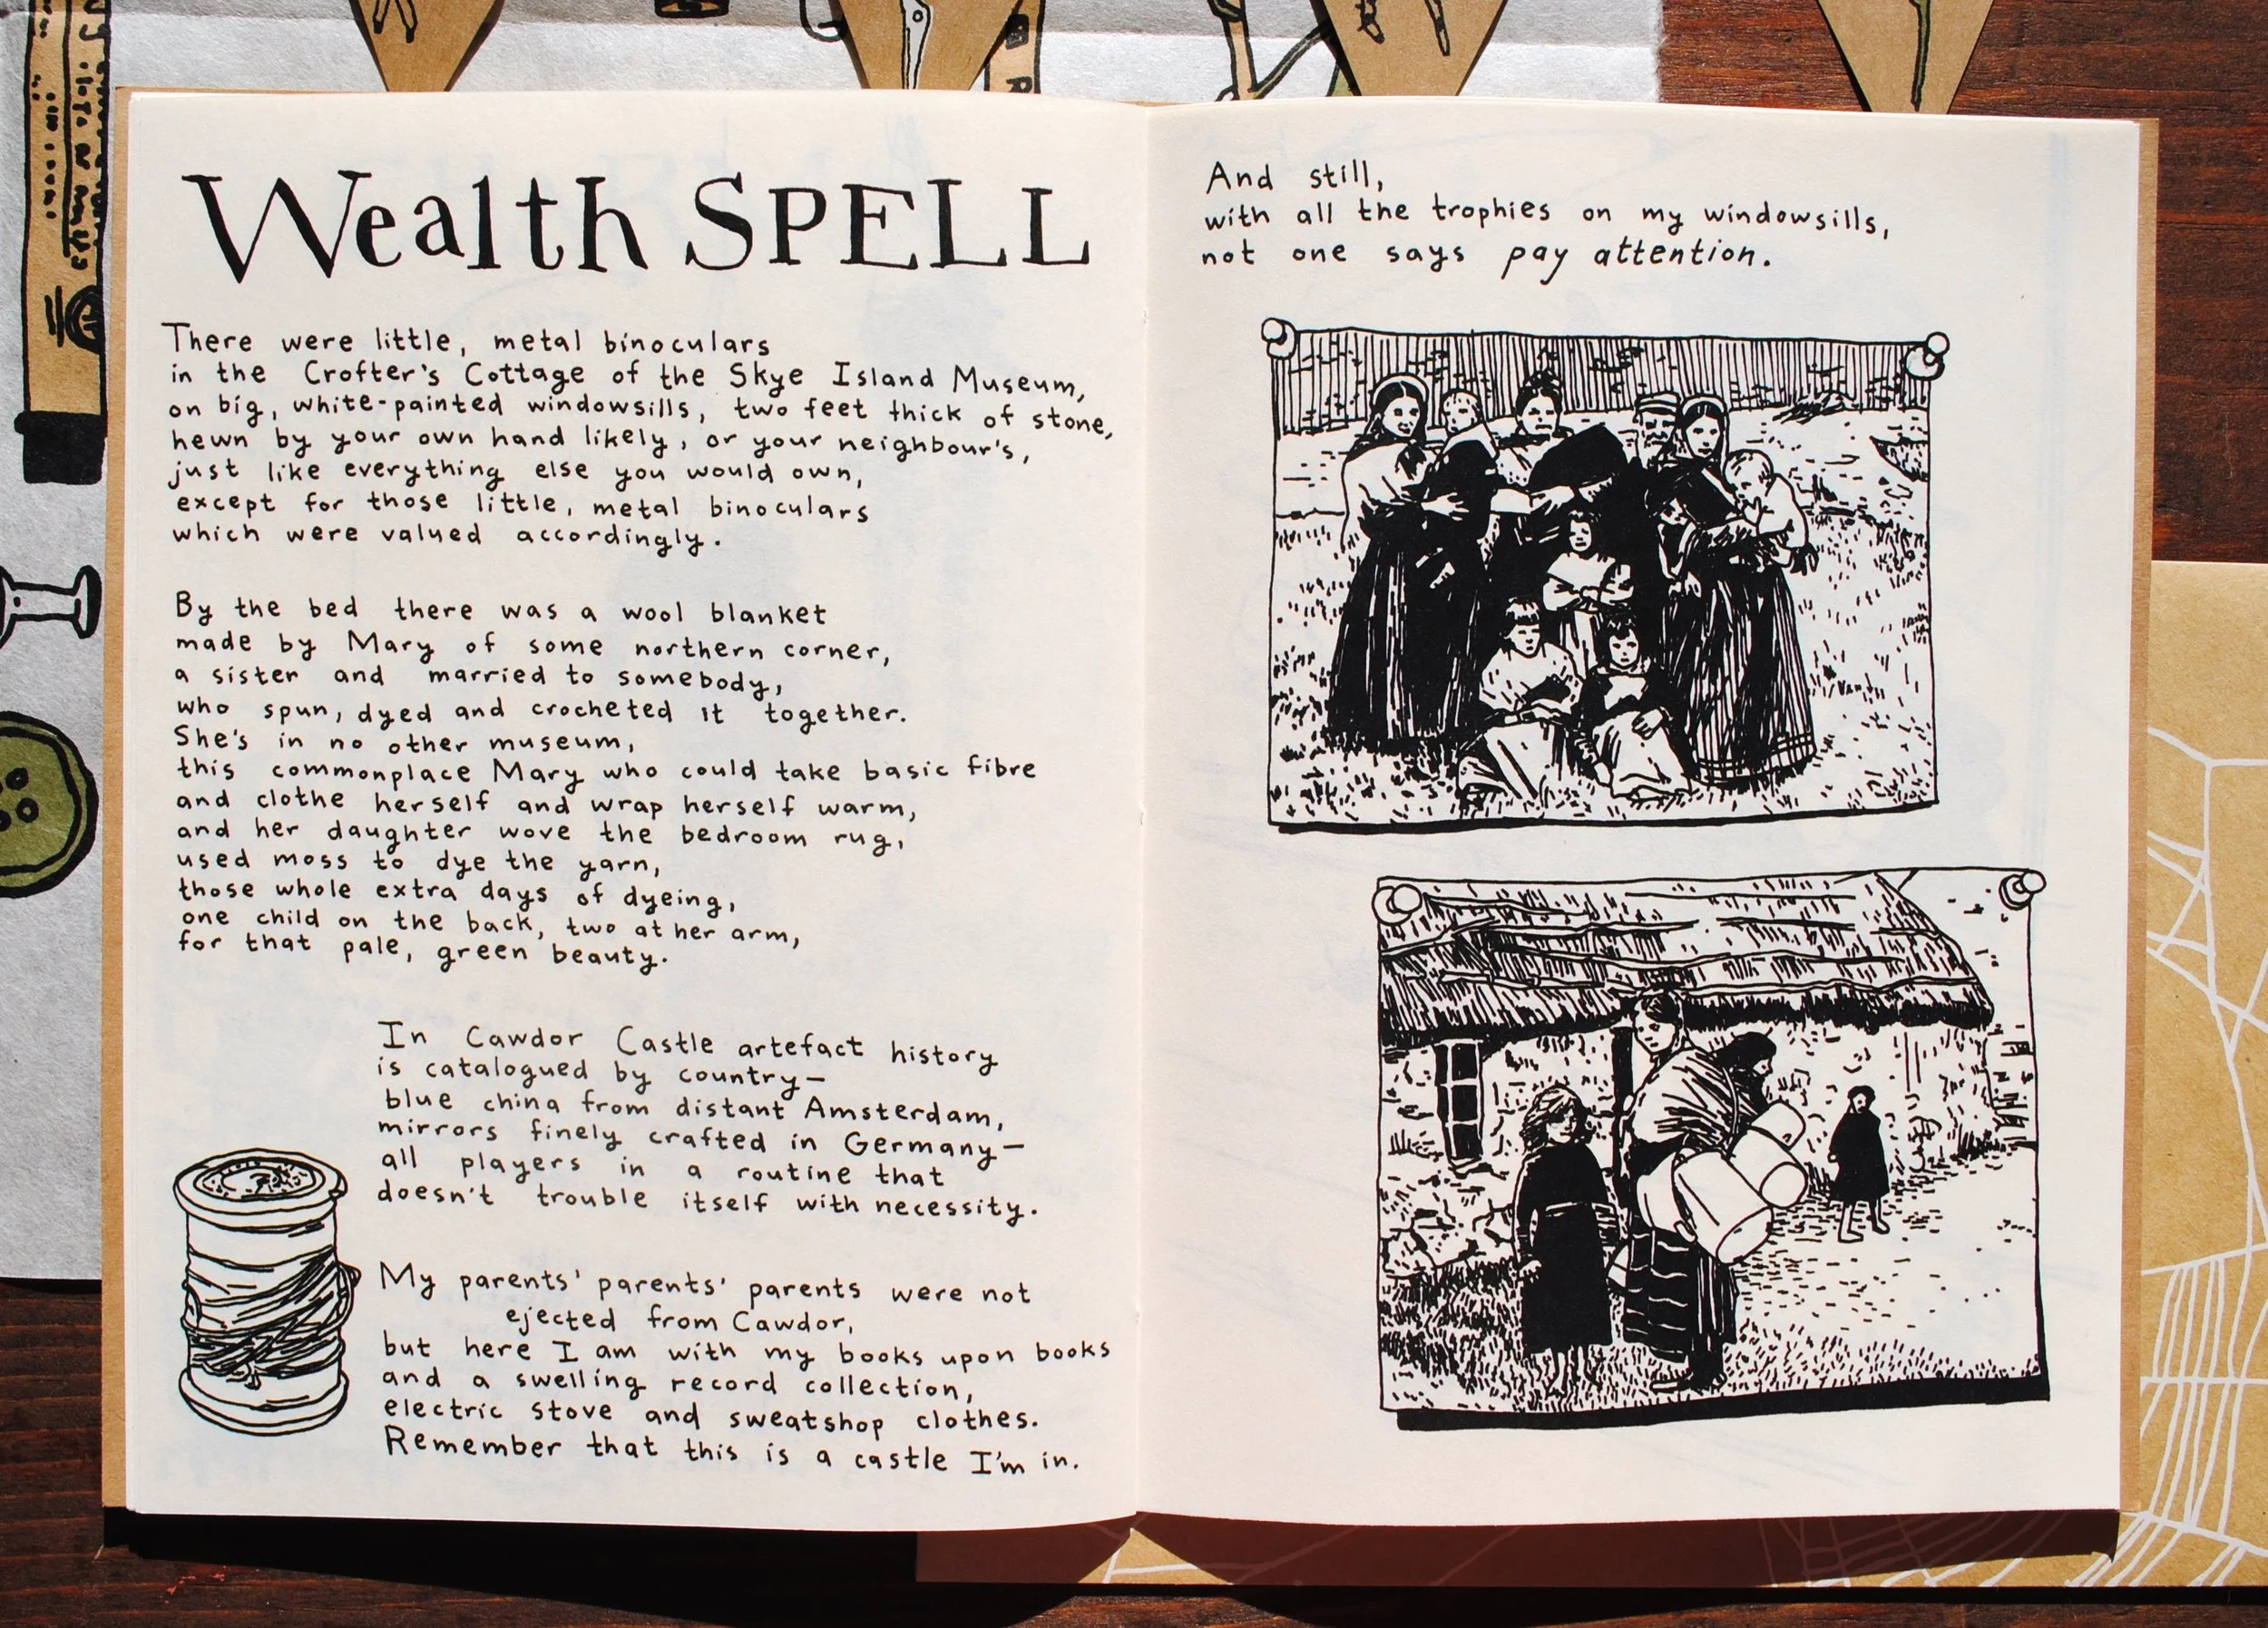 Wealth SPELL
There were little, metal binoculars
in the Crofter's Cottage of the Skye Island Museum,
on big, white-painted windowsills, two feet thick of stone,
hewn by your own hand likely, or your neighbour's,
just like everything else you would own,
except for those little, metal binoculars
which were valued accordingly.
By the bed there was a wool blanket
made by Mary of some northern corner,
a sister and married to somebody,
who spun, dyed and crocheted it together.
She's in no other museum,
this commonplace Mary who could take basic fibre
and clothe herself and wrap herself warm,
and her daughter wove the bedroom rug,
used moss to dye the yarn,
those whole extra days of dyeing,
one child on the back, two at her arm,
for that pale, green beauty.
In Cawdor Castle artefact history
is catalogued by country—
blue china from distant Amsterdam,
mirrors finely crafted in Germany—
all players in a routine that
doesn't trouble itself with necessity.
My parents' parents' parents were not
ejected from Cawdor,
but here I am with my books upon books
and a swelling record collection,
electric stove and sweatshop clothes.
Remember that this is a castle I'm in.
And still,
with all the trophies on my windowsills,
not one says pay attention.